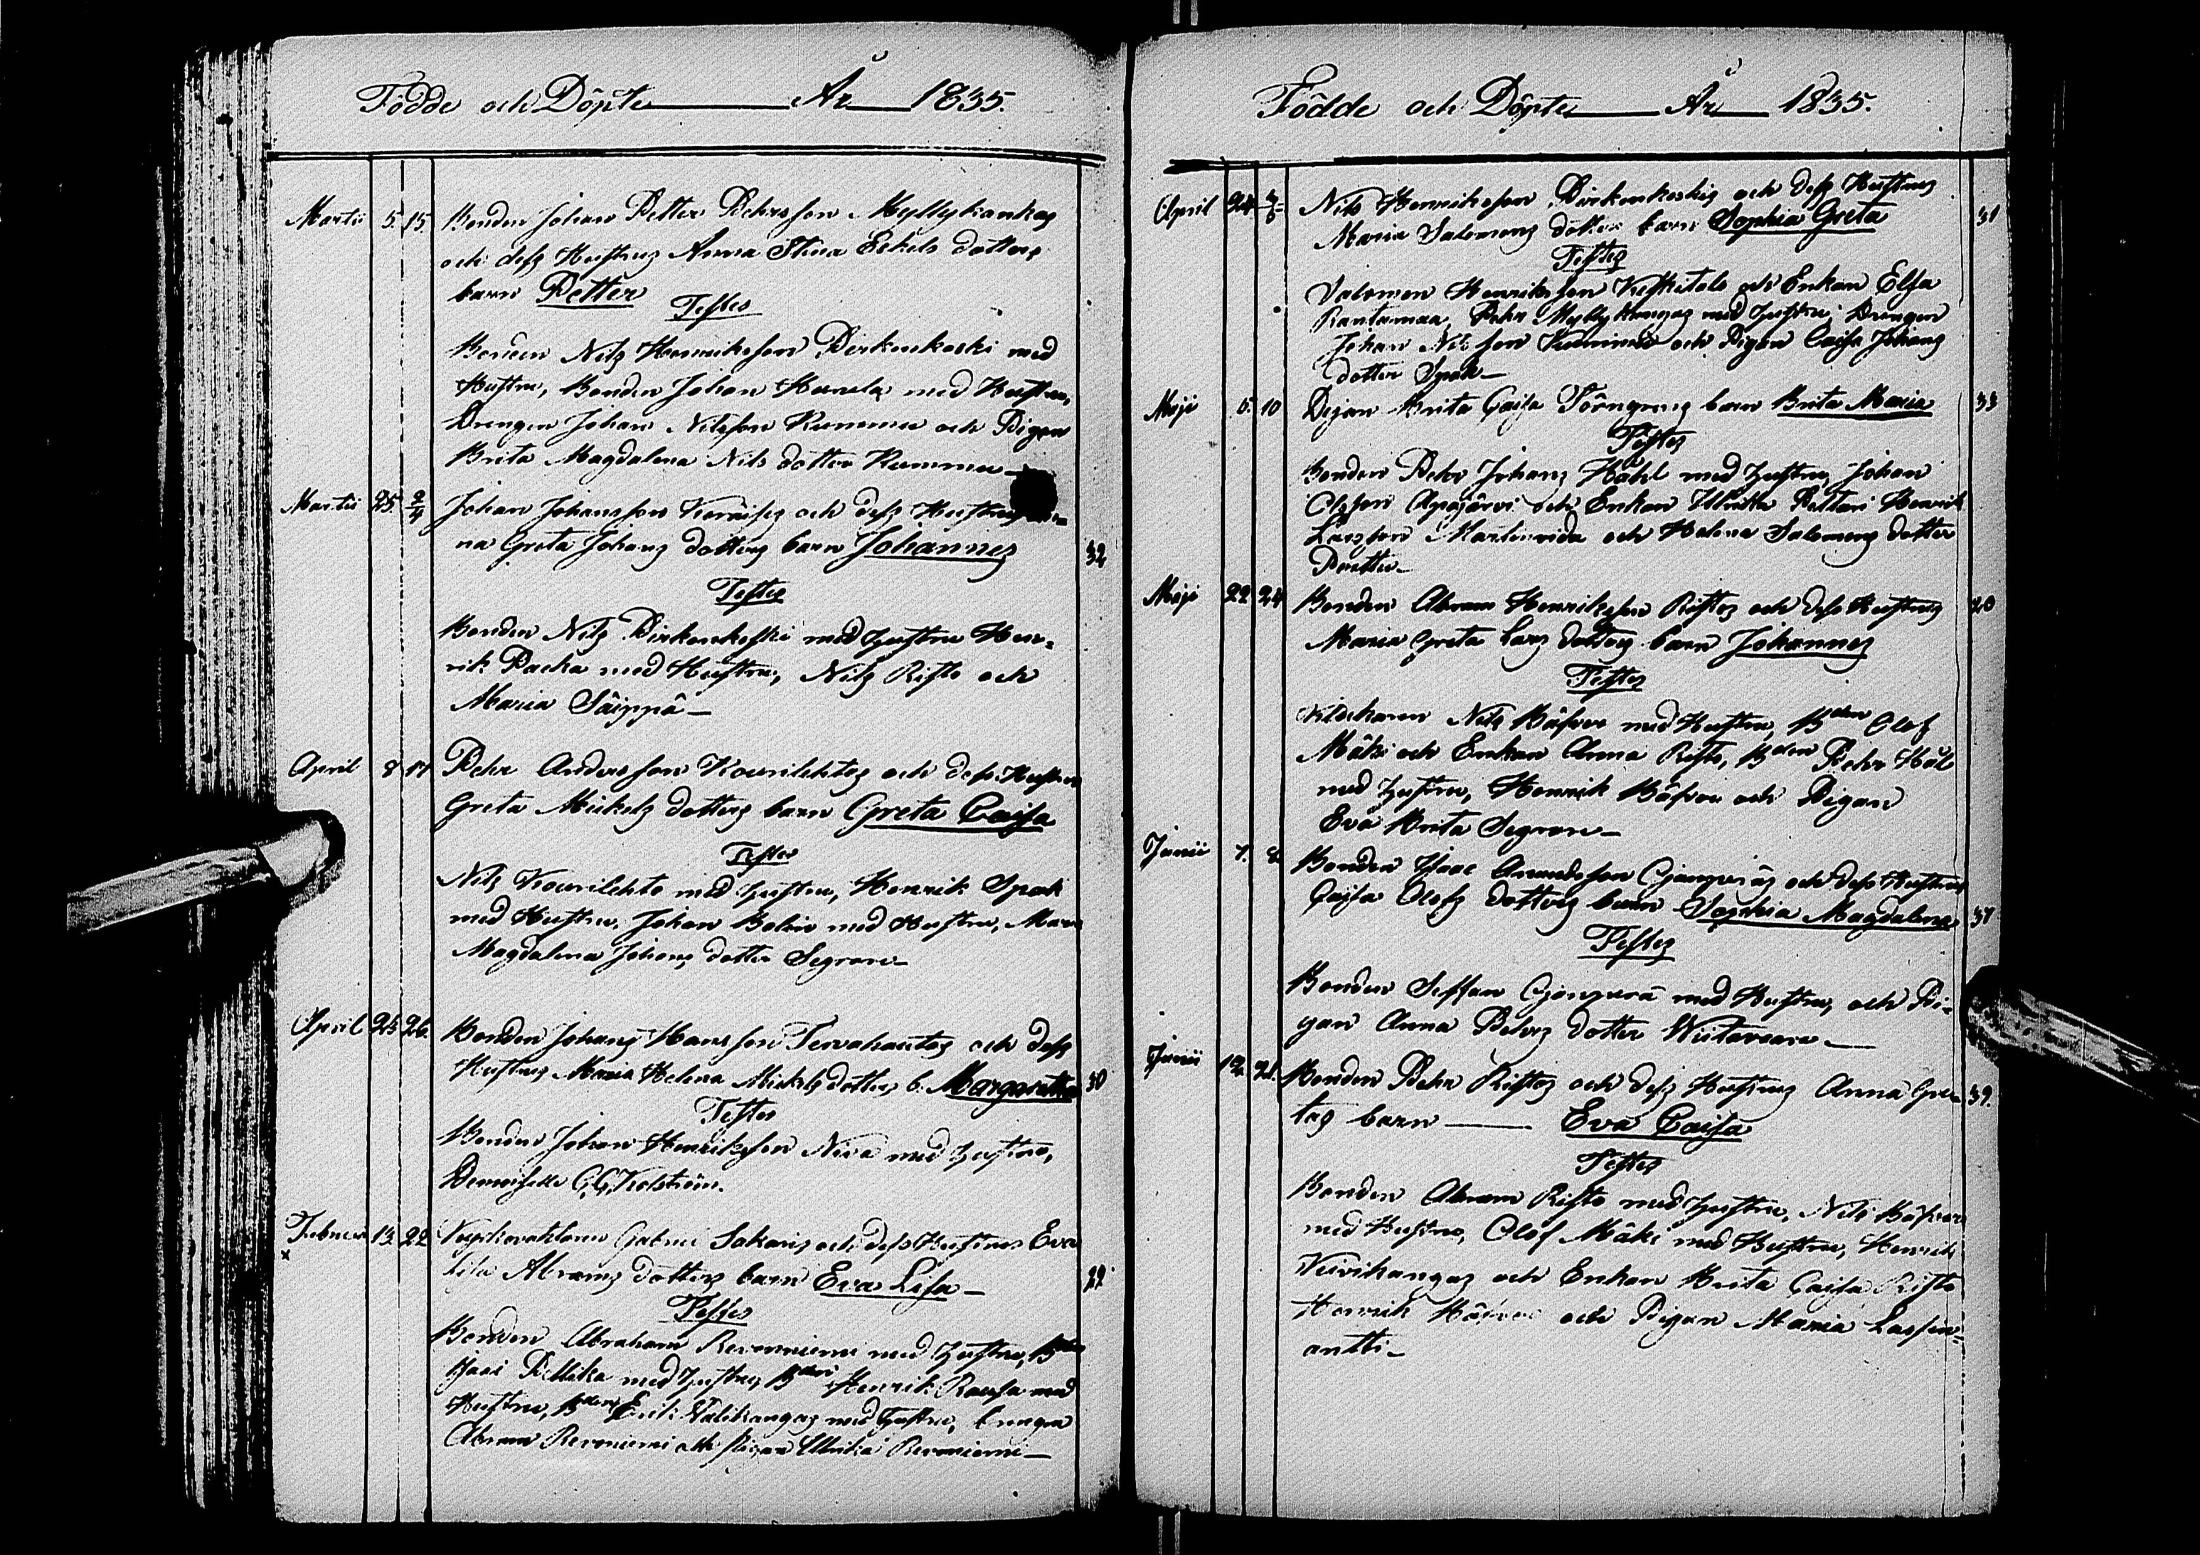 Födde och Döpte År 1835.
Martii 5. 15. Bonden Johan Petter Pehrsson Myllykankas
och dess Hustrus Anna Stina Eskels dotters
barn Petter
Testes
Bonden Nils Henriksson Pirkenkoski med
Hustru, Bonden Johan med Hustru,
Drengen Johan Nilsson Kummu och Pigan
Brita Magdalena Nils dotter Kummu
Martii 25. 2/4 Johan Johansson och dess Hustrus
na Greta Johans dotters barn Johannes 32
Testes
Bonden Nils Pirkenkoski med Hustru Hen-
rik Packa med Hustru, Nils Risto och
Maria Säippä
April 8 Pehr Andersson Kourilehtos och dess Hustrus
Greta Mickels dotters barn Greta Caisa
Testes
Nils Kourilehto med Hustru, Henrik Spak
med Hustru, Johan Bolin med Hustru, Maria
Magdalena Johans dotter Segrare
April 25 26. Bonden Johans Hansson Tervahautas och dess
Hustrus Maria Helena Mickels dotters b. Margaretha 30
Testes
Bonden Johan Henriksson Niva med Hustru,
Demoiselle C. G.
Februarii 13. 22 Gabriel Sakaris och dess Hustrus Eva
Lisa Abrams dotters barn Eva Lisa 22
Testes
Bonden Abraham Revoniemi med Hustru, Bden
Isaac Pellika med Hustru, Bden Henrik med
Hustru, Bden Erik Välikangas med Hustru, Drengen
Abram Revoniemi och Pigan Ullrika Revoniemi
Födde och Döpte År 1835.
April 24 3/5 Nils Henriksson Pirkenkoskis och dess Hustrus
Maria Salomons dotters barn Sophia Greta 31
Testes
Salomon Henriksson Keskitalo och Enkan Elsa
Rantamaa, Pehr Myllykangas med Hustru, Drengen
Johan Nilsson Kummu och Pigan Caisa Johans
dotter Spak
Maji 5. 10 Pigan Brita Caisa Törngrens barn Brita Maria 33
Testes
Bonden Pehr Johans Håhl med Hustru, Johan
Olsson Apajärvi och Enkan Ullrika Pettari Henrik
Larsson Martinrida och Helena Salomons dotter
Maji 22 24 Bonden Abram Henriksson Ristos och dess Hustrus
Maria Greta Lars dotters barn Johannes 20
Testes
Nils Bäfver med Hustru, Bden Olof
Mäki och Enkan Anna Risto, Bden Pehr Hål
med Hustru, Henrik Bäfver och Pigan
Eva Brita Segrare
Junii 7. 8. Bonden Isac Amundsson och dess Hustrus
Caisa Olofs dotters barn Sophia Magdalena 37
Testes
Bonden Steffan med Hustru, och Pi-
gan Anna Pehrs dotter Wiitavaara
Junii 12. 21. Bonden Pehr Ristos och dess Hustrus Anna Gre-
tas barn Eva Caisa 39.
Testes
Bonden Abram Risto med Hustru, Nils Bäfver
med Hustru, Olof Mäki med Hustru, Henrik
Kivikangas och Enkan Brita Caisa Risto
Henrik Bäfver och Pigan Maria Lassin-
antti